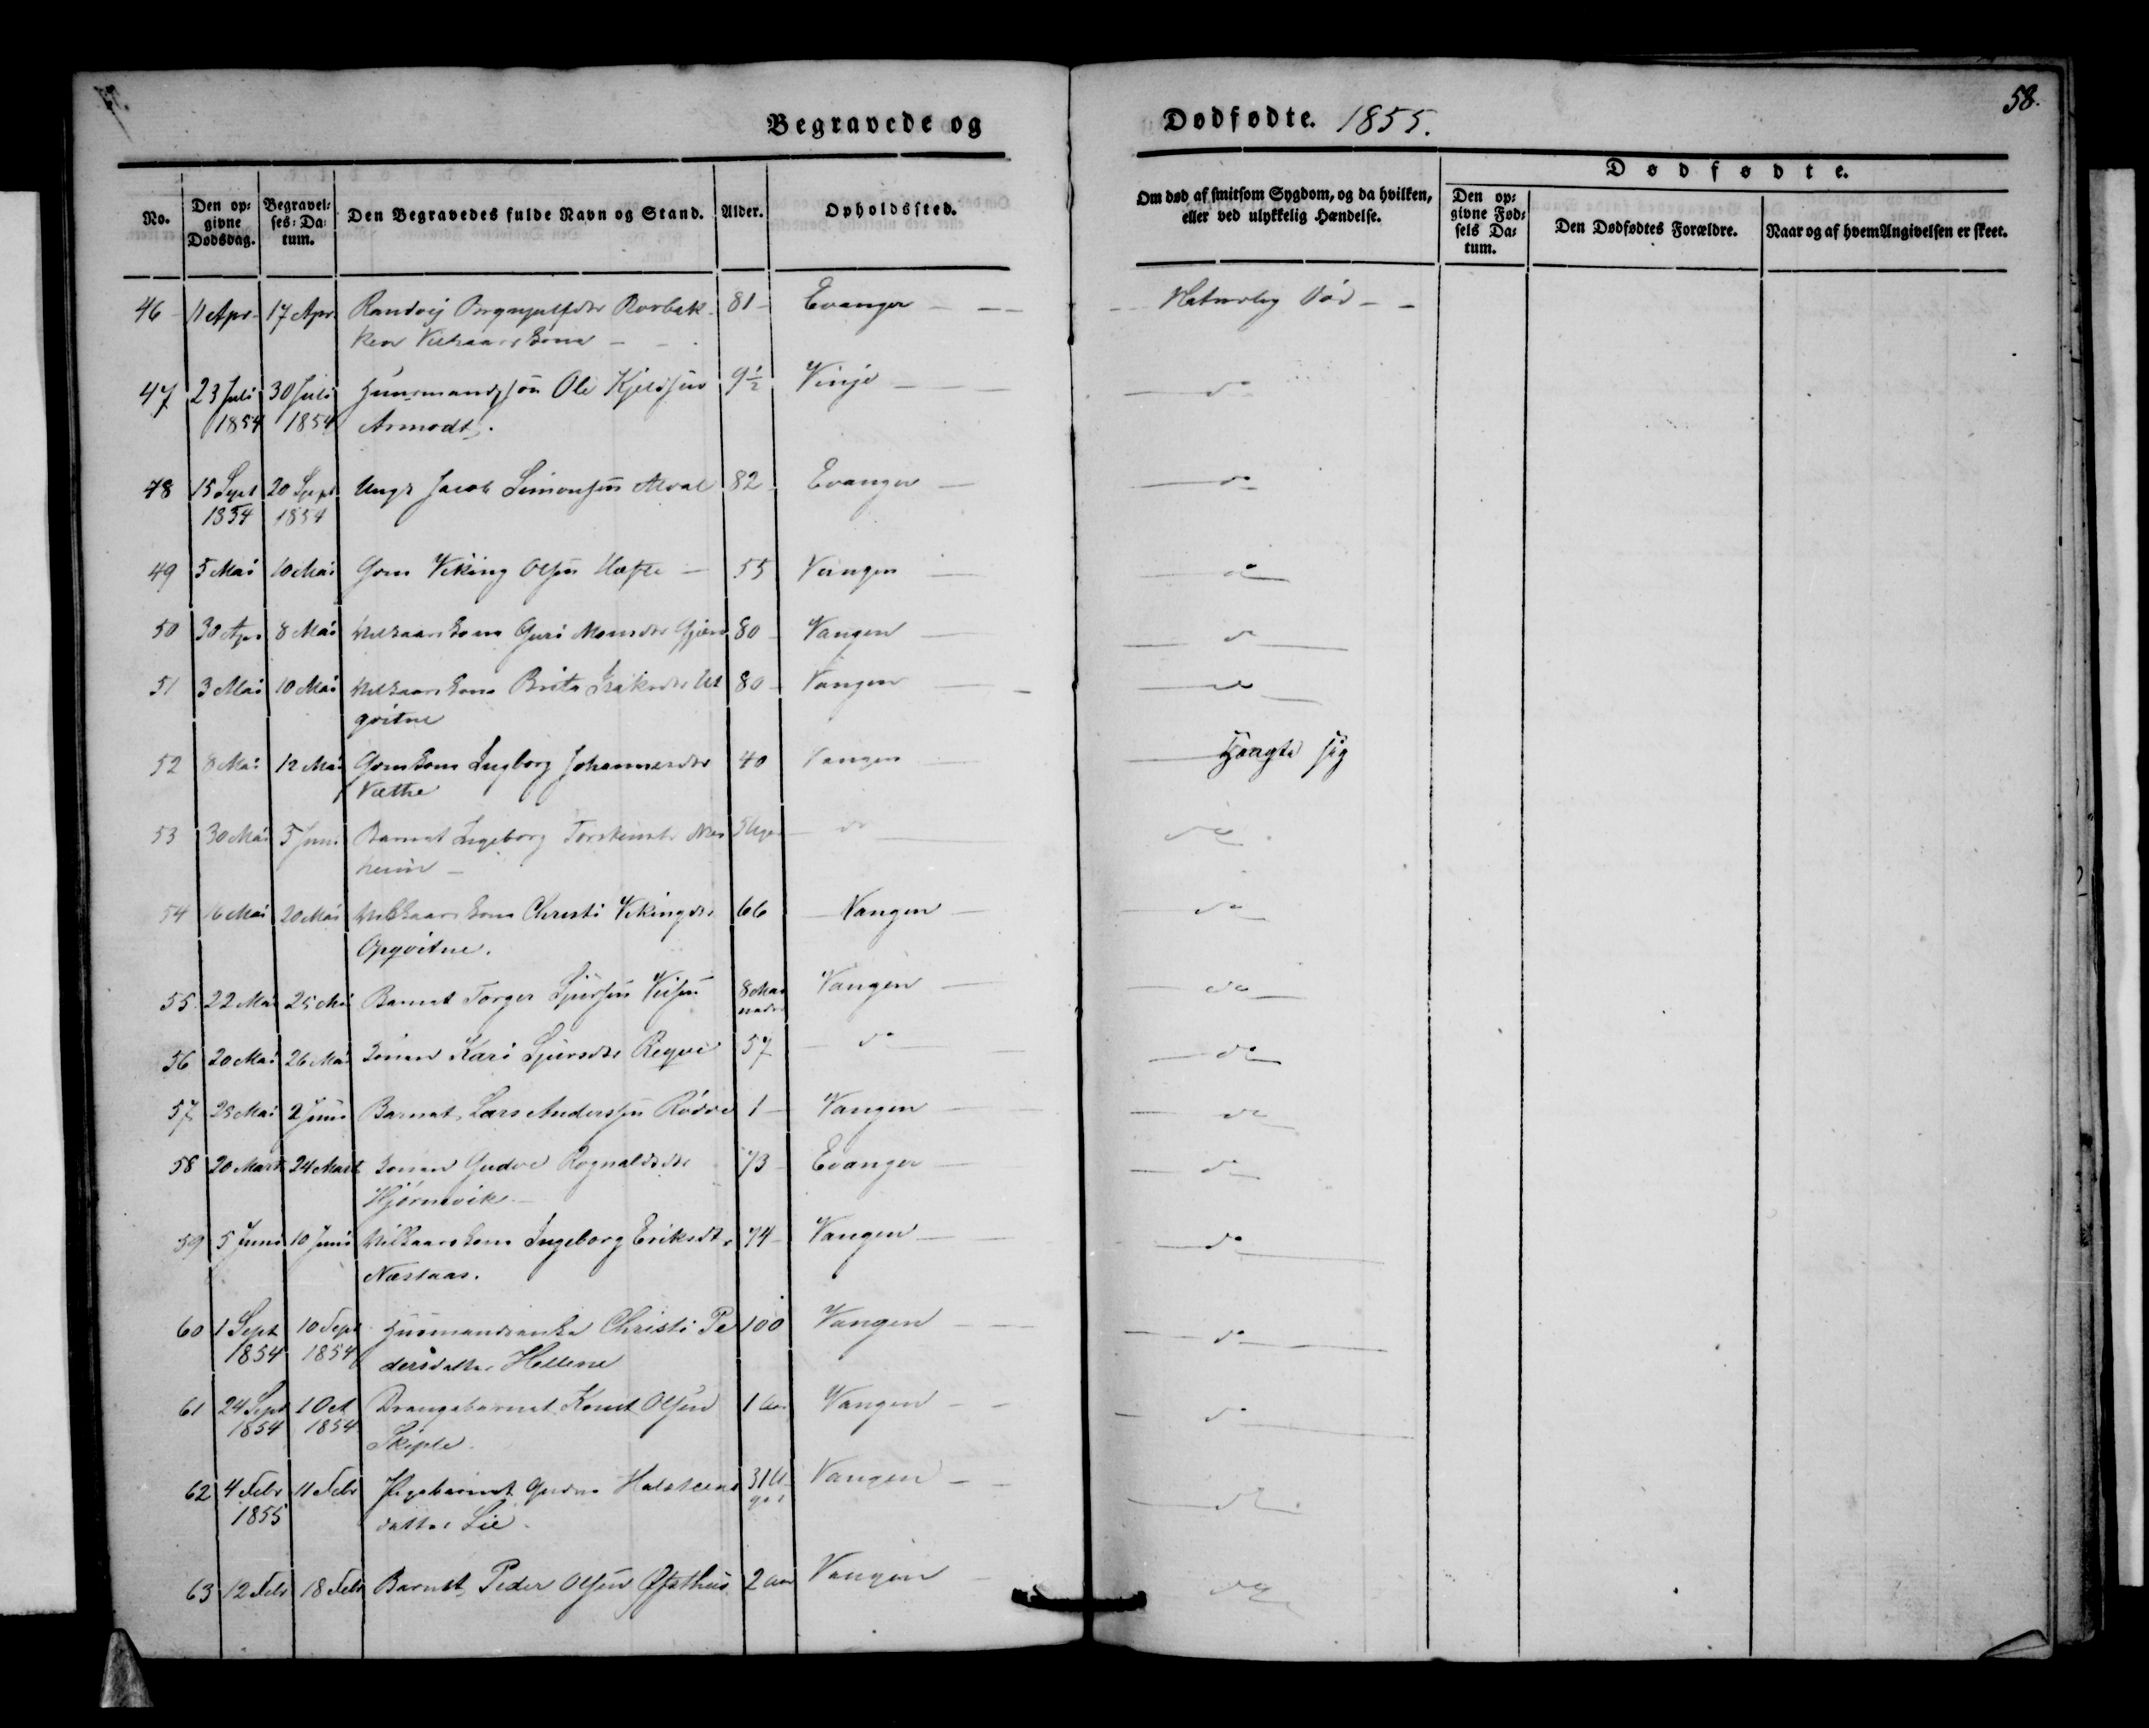 58.
Begravede og Dødfødte. 1855.
No.
Den opgivne Dødsdag.
Begravelses-Datum.
Den Begravedes fulde Navn og Stand.
Alder.
Opholdssted.
Om død af smitsom Sygdom, og da hvilken, eller ved ulykkelig Hændelse.
Dødfødte.
Den opgivne Fødsels Datum.
Den Dødfødtes Forældre.
Naar og af hvem Angivelsen er skeet.
46 11 Apr 17 Apr Randvij 81 Evanger Naturlig Død
ken Kone
47 23 Juli 30 Juli Huusmandssøn Ole Kjeldsen 9½ Vinje do
1854 1854 Armodt.
48 15 Sept 20 Sept Ungk Jacob Simonsen 82 Evanger do
1854 1854
49 5 Mai 10 Mai Gm Viking Olsen 55 Vangen do
50 30 Apr 8 Mai Vilkaarskone Guri Monsdtr 80 Vangen do
51 3 Mai 10 Mai Vilkaarskone Brita Isaksdtr 80 Vangen do
qvitne
52 8 Mai 12 Mai Gmkone Ingborg Johannesdtr 40 Vangen Hængte sig
Væthe
53 30 Mai 5 Juni Barnet Ingeborg 5 Uger do do
heim
54 16 Mai 20 Mai Vilkaarskone Christi Vikingdtr 66 Vangen do
Opqvitne.
55 22 Mai 25 Mai Barnet Torger Sjursen 8 Maa Vangen do
neder
56 20 Mai 26 Mai Konen Kari Sjursdtr Reqve 57 do do
57 28 Mai 2 Juni Barnet Lars Anderssen Rødve 1 Vangen do
58 20 Marts 24 Marts Konen Gudve Rognaldsdtr 73 Evanger do
Hjørnevik
59 5 Juni 10 Juni Vilkaarskone Ingeborg Eriksdtr 74 Vangen do
Næstaas.
60 1 Sept 10 Sept Huusmandsenke Christi Pe 100 Vangen do
1854 1854 dersdatter Hellene
61 24 Sept 1 Oct Drengebarnet Knut Olsen 1 Aar Vangen do
1854 1854 Skiple
62 4 Febr 11 Febr Pigebarnet Halsteens 31 U Vangen do
1855 datter Lie. ger
63 12 Febr 18 Febr Barnet Peder Olsen Øfsthus 2 Aar Vangen do